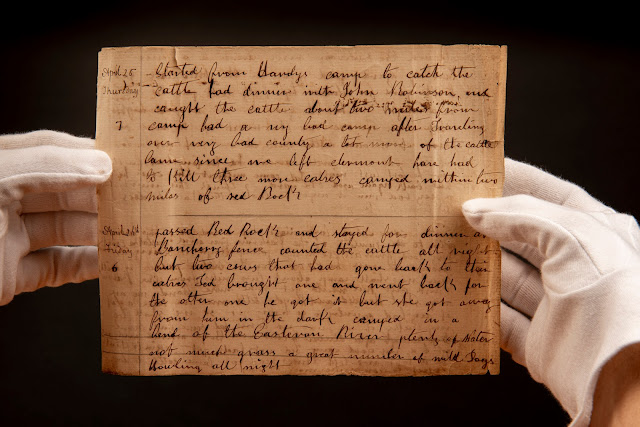 April 25 Started from Handys camp to catch the
Thursday cattle had dinner with John Robinson, and
caught the cattle about two miles from
7 camp had a very bad camp after Traveling
over very bad country a lot more of the cattle
lame since we left clermont have had
to kill three more calves camped within two
miles of red Rock
April 26th passed Red Rock and stayed for dinner at
Friday fence counted the cattle all right
6 but two cows that had gone back to their
calves Ted brought one and went back for
the other one he got it but she got away
from him in the dark camped in a
bend of the River plenty of water
not much grass a great number of wild Dogs
Howling all night